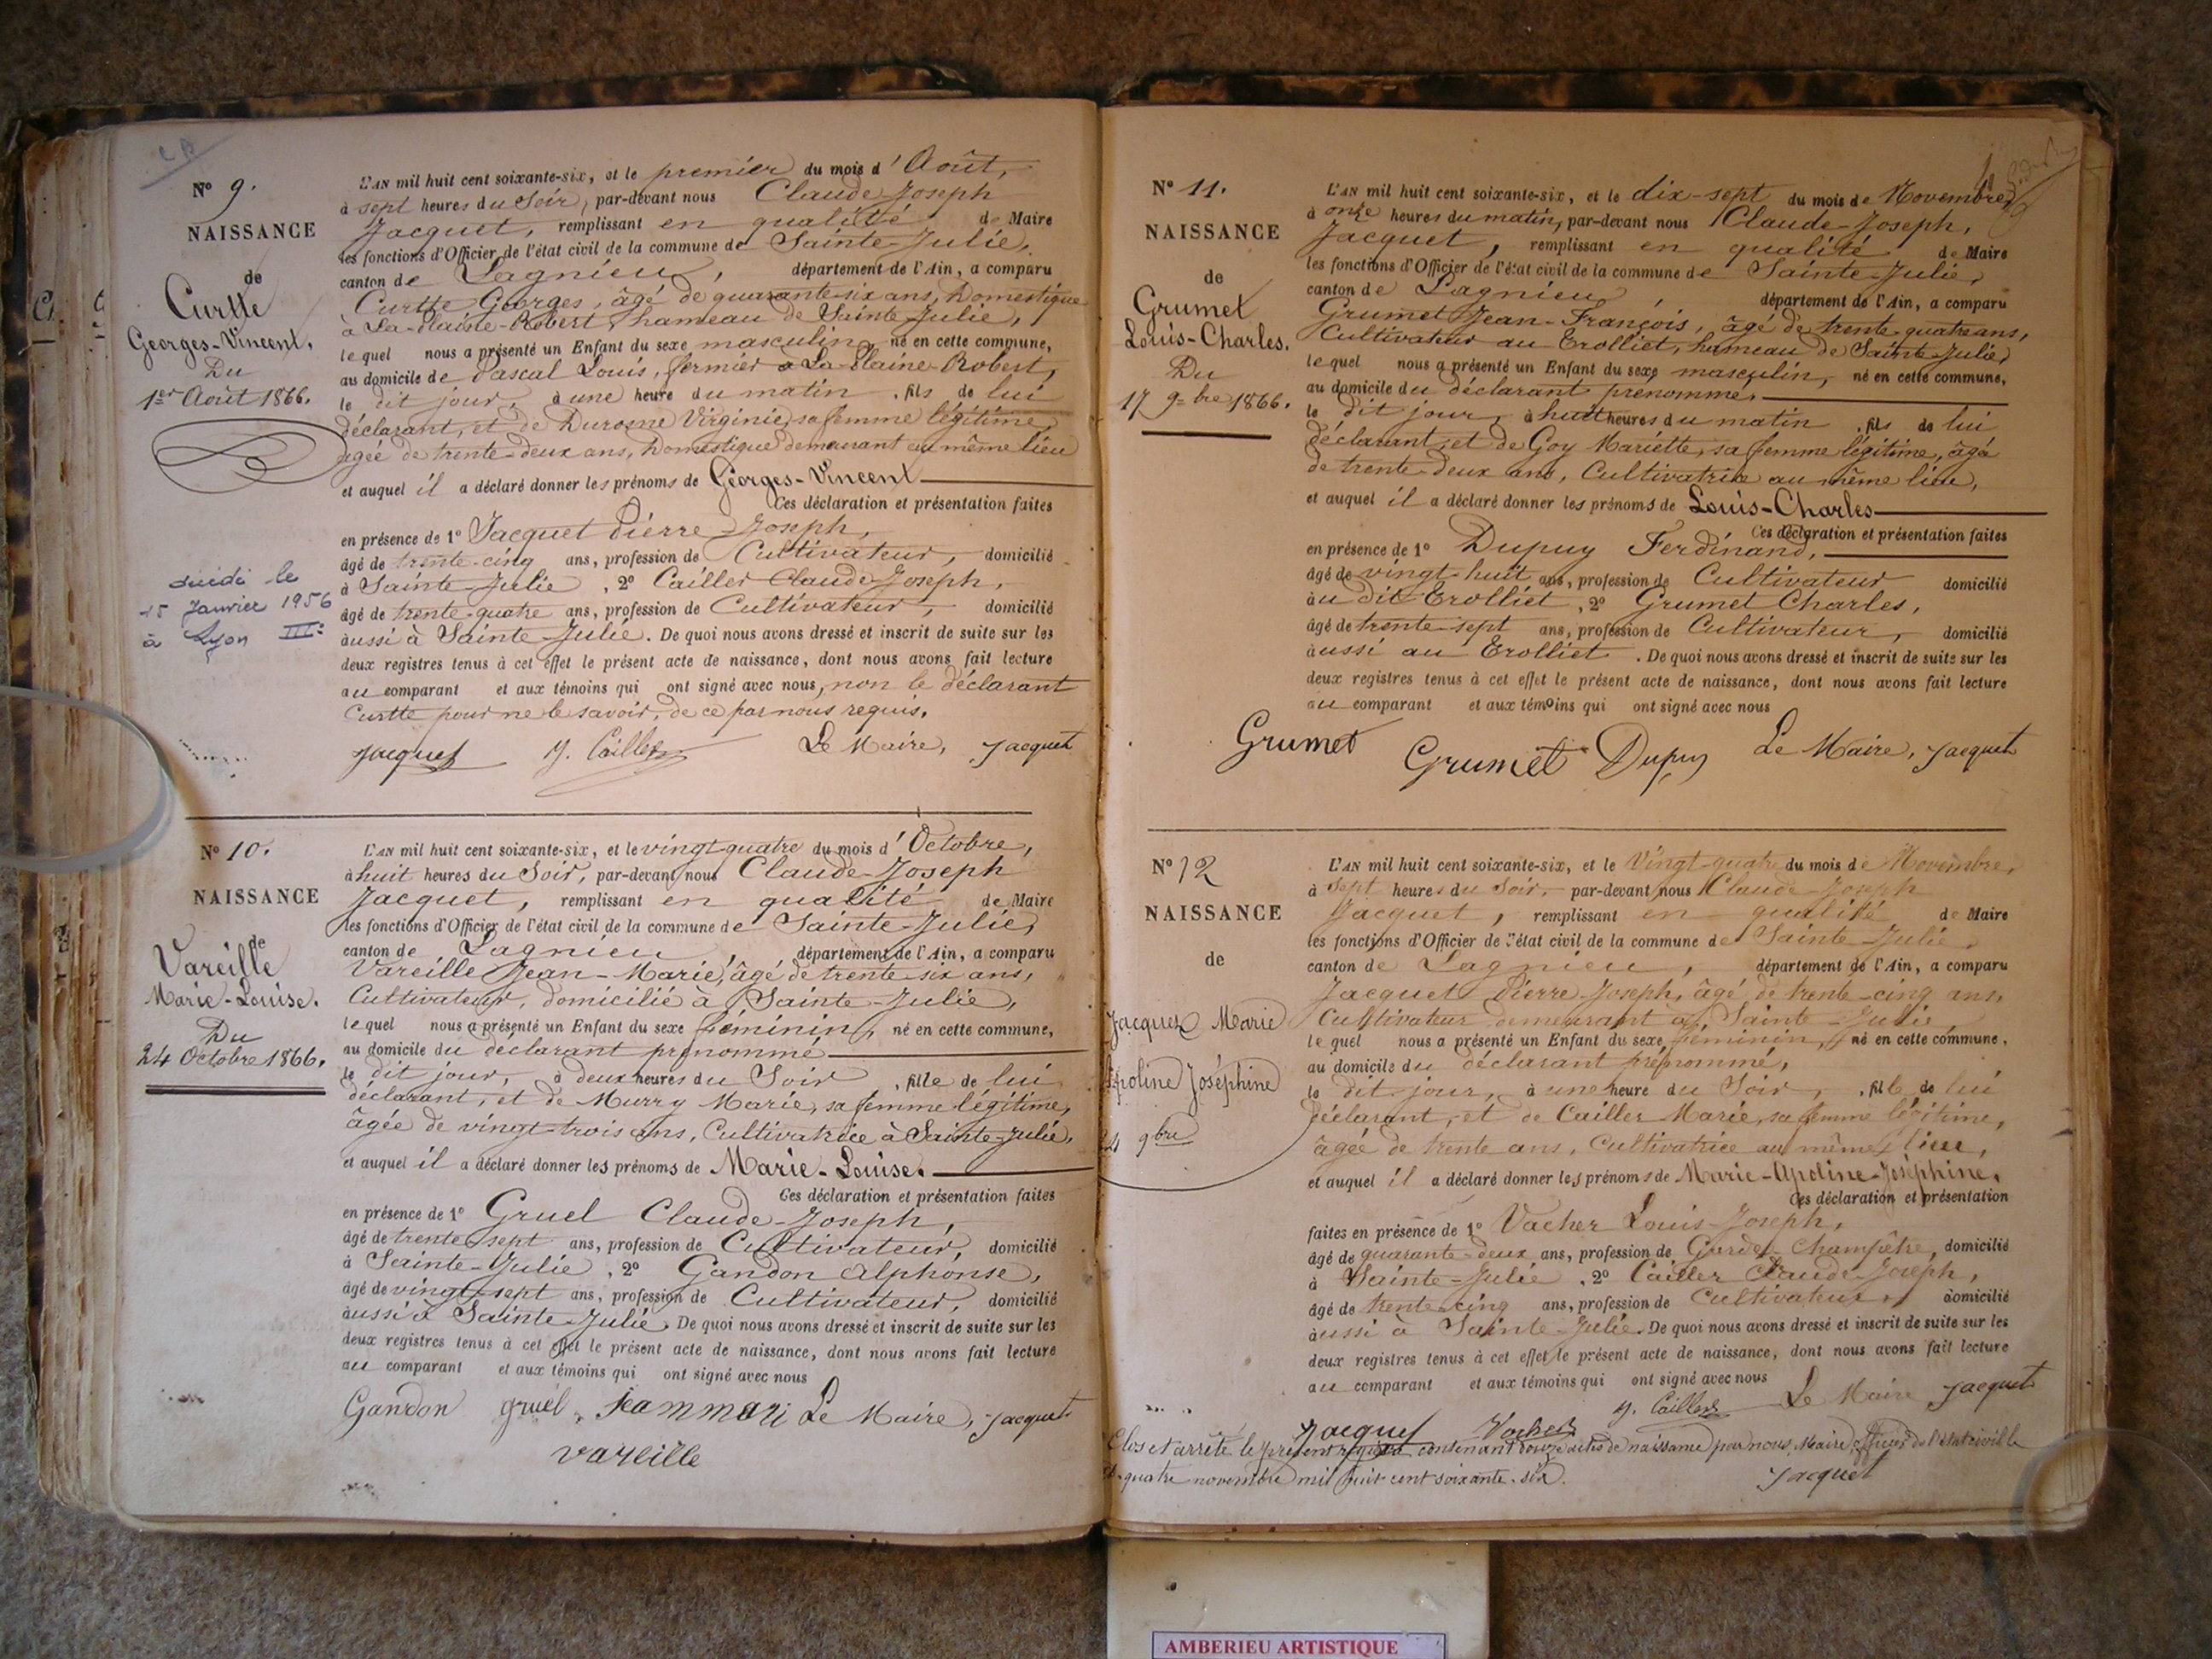 N° 9.
NAISSANCE
de
Curtte
Georges-Vincent.
Du
1er Août 1866.
L'AN mil huit cent soixante-six, et le premier du mois d'Août,
à sept heures du Soir, par-devant nous Claude Joseph
Jacquet, remplissant en qualité de Maire
les fonctions d'Officier de l'état civil de la commune de Sainte-Julie,
canton de Lagnieu, département de l'Ain, a comparu
Curtte Georges, âgé de quarante-six ans, Domestique
à La-Plaine-Robert, hameau de Sainte-Julie,
lequel nous a présenté un Enfant du sexe masculin, né en cette commune,
au domicile de Pascal Louis, fermier à La Plaine-Robert,
le dit jour, à une heure du matin, fils de lui
déclarant, et de Durosne Virginie, sa femme légitime,
agée de trente-deux ans, Domestique demeurant au même lieu
et auquel il a déclaré donner les prénoms de Georges-Vincent
Ces déclaration et présentation faites
en présence de 1° Jacquet Pierre-Joseph,
âgé de trente-cinq ans, profession de Cultivateur, domicilié
à Sainte-Julie, 2° Cailler Claude-Joseph,
âgé de trente-quatre ans, profession de Cultivateur, domicilié
aussi à Sainte-Julie. De quoi nous avons dressé et inscrit de suite sur les
deux registres tenus à cet effet le présent acte de naissance, dont nous avons fait lecture
au comparant et aux témoins qui ont signé avec nous, non le déclarant
Curtte pour ne le savoir, de ce par nous requis.
Jacquet J. Cailler Le Maire, Jacquet
le
15 Janvier 1956
à Lyon IIIe
N° 10.
NAISSANCE
de
Vareille
Marie-Louise.
Du
24 Octobre 1866.
L'AN mil huit cent soixante-six, et le vingt-quatre du mois d'Octobre,
à huit heures du Soir, par-devant nous Claude-Joseph
Jacquet, remplissant en qualité de Maire
les fonctions d'Officier de l'état civil de la commune de Sainte-Julie,
canton de Lagnieu, département de l'Ain, a comparu
Vareille Jean-Marie, âgé de trente-six ans,
Cultivateur, domicilié à Sainte-Julie,
lequel nous a présenté un Enfant du sexe féminin, né en cette commune,
au domicile du déclarant prénommé
le dit jour, à deux heures du Soir, fille de lui
déclarant, et de Murry Marie, sa femme légitime,
âgée de vingt-trois ans, Cultivatrice à Sainte-Julie,
et auquel il a déclaré donner les prénoms de Marie-Louise.
Ces déclaration et présentation faites
en présence de 1° Gruel Claude-Joseph,
âgé de trente-sept ans, profession de Cultivateur, domicilié
à Sainte-Julie, 2° Gandon Alphonse,
âgé de vingt-sept ans, profession de Cultivateur, domicilié
aussi à Sainte-Julie. De quoi nous avons dressé et inscrit de suite sur les
deux registres tenus à cet effet le présent acte de naissance, dont nous avons fait lecture
au comparant et aux témoins qui ont signé avec nous
Gandon gruel jeanmari Le Maire, Jacquet
vareille
N° 11.
NAISSANCE
de
Grumet
Louis-Charles.
Du
17 9bre 1866.
L'AN mil huit cent soixante-six, et le dix-sept du mois de Novembre,
à onze heures du matin, par-devant nous Claude-Joseph,
Jacquet, remplissant en qualité de Maire
les fonctions d'Officier de l'état civil de la commune de Sainte-Julie,
canton de Lagnieu, département de l'Ain, a comparu
Grumet Jean-François, âgé de trente-quatre ans,
Cultivateur au Trolliet, hameau de Sainte-Julie,
lequel nous a présenté un Enfant du sexe masculin, né en cette commune,
au domicile du déclarant prénommé,
le dit jour, à huit heures du matin, fils de lui
déclarant, et de Goy Mariette, sa femme légitime, âgée
de trente-deux ans, Cultivatrice au même lieu,
et auquel il a déclaré donner les prénoms de Louis-Charles
Ces déclaration et présentation faites
en présence de 1° Dupuy Ferdinand,
âgé de vingt-huit ans, profession de Cultivateur domicilié
au dit Trolliet, 2° Grumet Charles,
âgé de trente-sept ans, profession de Cultivateur, domicilié
aussi au Trolliet. De quoi nous avons dressé et inscrit de suite sur les
deux registres tenus à cet effet le présent acte de naissance, dont nous avons fait lecture
au comparant et aux témoins qui ont signé avec nous
Grumet Grumet Dupuy Le Maire, Jacquet
N° 12
NAISSANCE
de
Jacquet Marie
Apoline Joséphine
24 9bre
L'AN mil huit cent soixante-six, et le Vingt-quatre du mois de Novembre,
à Sept heures du Soir, par-devant nous Claude-Joseph
Jacquet, remplissant en qualité de Maire
les fonctions d'Officier de l'état civil de la commune de Sainte-Julie,
canton de Lagnieu, département de l'Ain, a comparu
Jacquet Pierre-Joseph, âgé de trente-cinq ans,
Cultivateur demeurant à Sainte-Julie
lequel nous a présenté un Enfant du sexe féminin, né en cette commune,
au domicile du déclarant prénommé,
le dit jour, à une heure du Soir, fille de lui
déclarant, et de Cailler Marie, sa femme légitime,
âgée de trente ans, Cultivatrice au même lieu,
et auquel il a déclaré donner les prénoms de Marie-Apoline-Joséphine.
Ces déclaration et présentation
faites en présence de 1° Vacher Louis-Joseph,
âgé de quarante-deux ans, profession de Garde-Champêtre, domicilié
à Sainte-Julie, 2° Cailler Claude-Joseph,
âgé de trente-cinq ans, profession de Cultivateur, domicilié
aussi à Sainte-Julie. De quoi nous avons dressé et inscrit de suite sur les
deux registres tenus à cet effet le présent acte de naissance, dont nous avons fait lecture
au comparant et aux témoins qui ont signé avec nous
J. Cailler Le Maire Jacquet
Jacquet Vacher
Clos et arrêté le présent registre contenant douze actes de naissance par nous, Maire, officier de l'état civil le
quatre novembre mil huit cent soixante-six.
Jacquet
AMBERIEU ARTISTIQUE